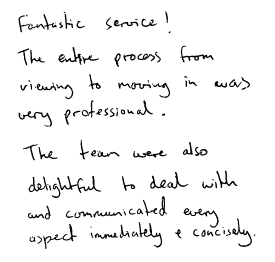 Fantastic service!
The entire process from
viewing to moving in was
very professional.
The team were also
delightful to deal with
and communicated every
aspect immediately & concisely.